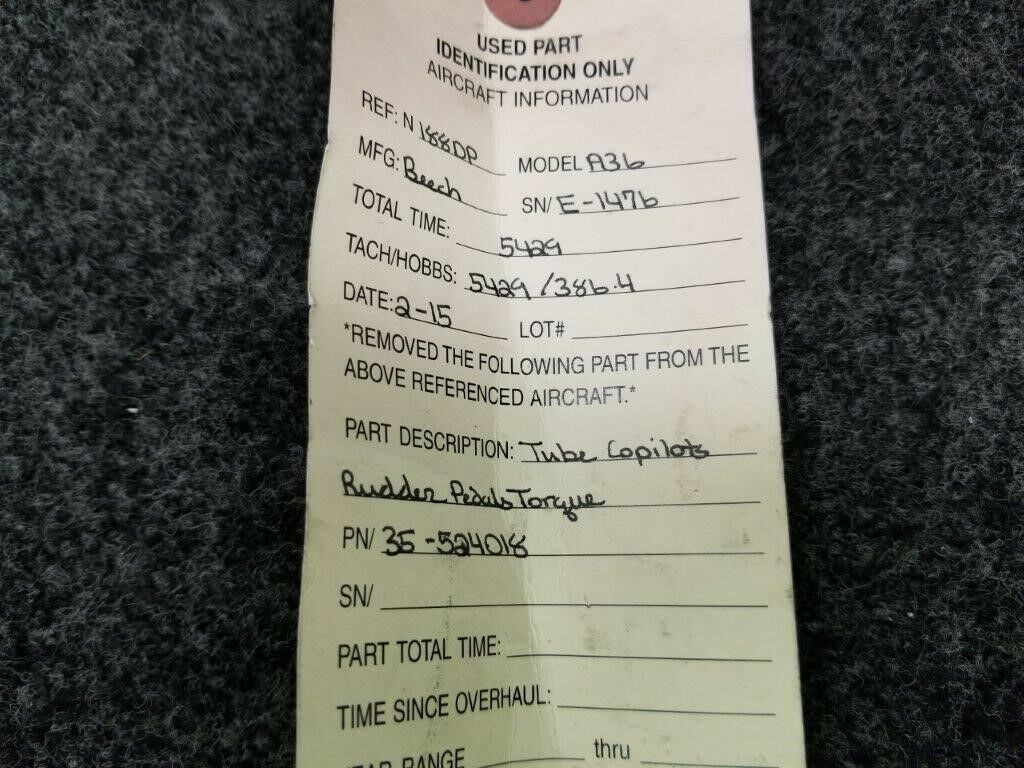 USED PART
IDENTIFICATION ONLY
AIRCRAFT INFORMATION
REF: N 188DP
MODEL A36
MFG: Beech
SN/ E-1476
TOTAL TIME: 5429
TACH/HOBBS: 5429 /386.4
DATE: 2-15 LOT#
*REMOVED THE FOLLOWING PART FROM THE
ABOVE REFERENCED AIRCRAFT.*
PART DESCRIPTION: Tube Copilots
Rudder Pedals Torque
PN/ 35-524018
SN/
PART TOTAL TIME:
TIME SINCE OVERHAUL:
RANGE thru